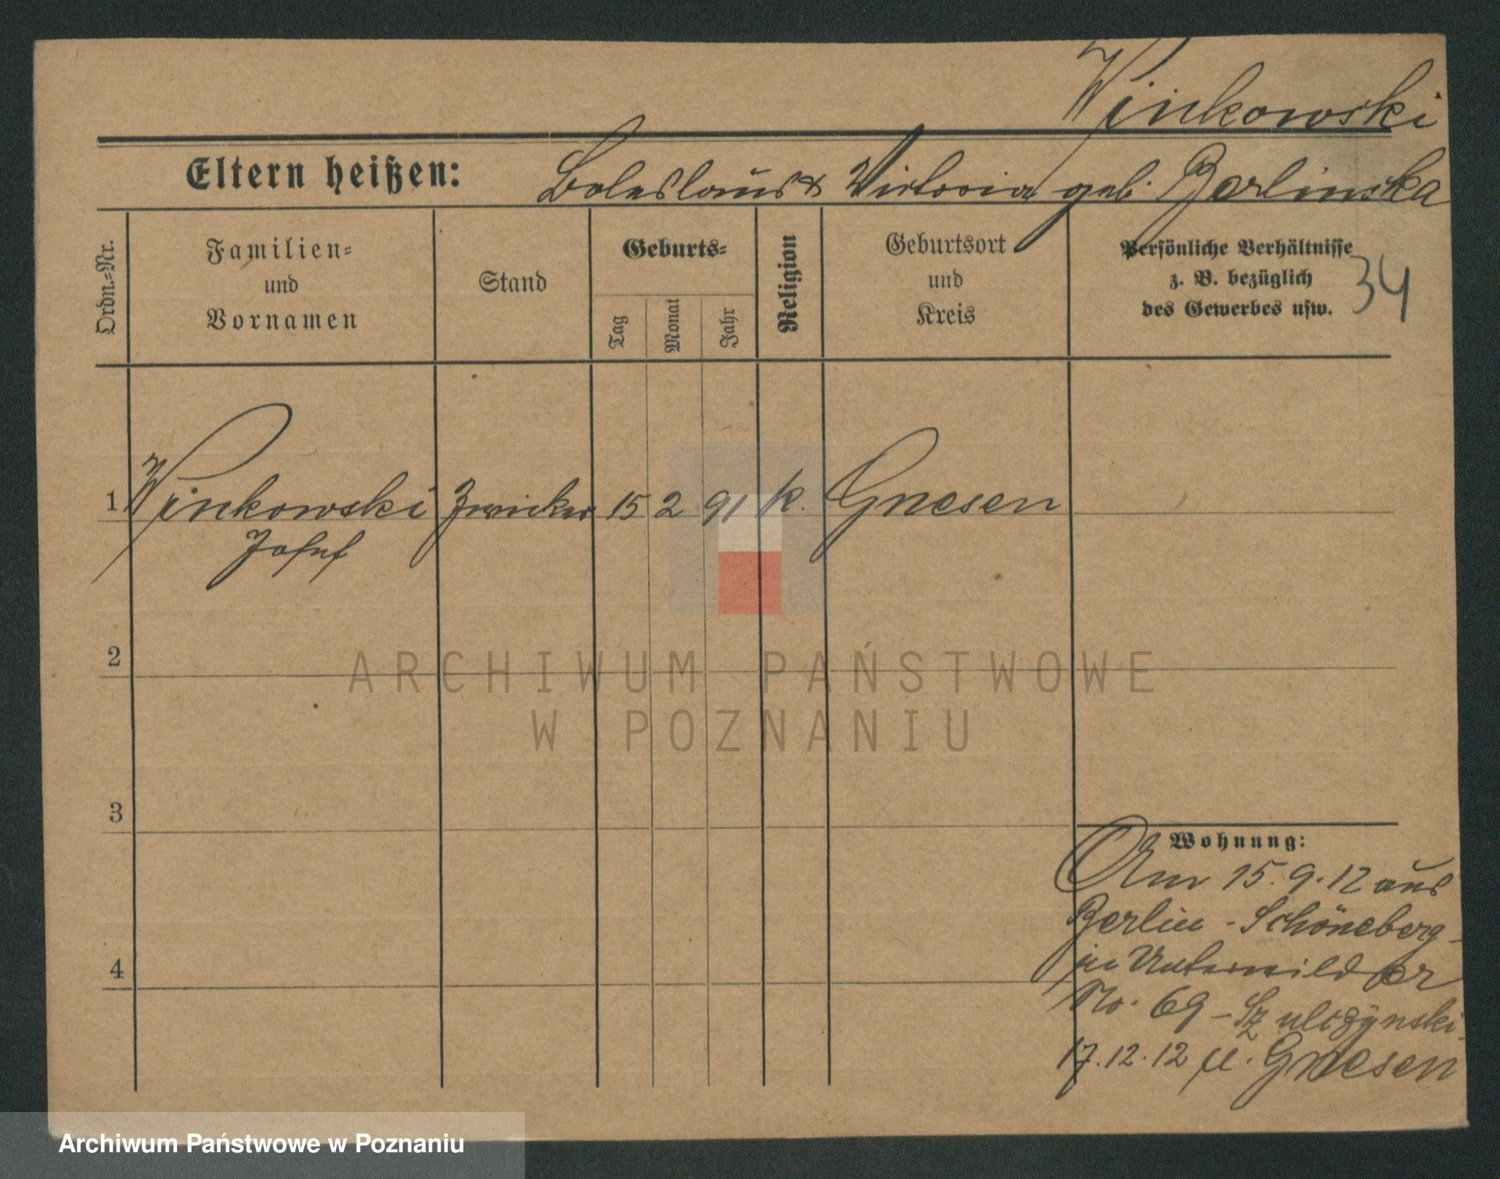 Winkowski
Eltern heißen: Boleslaus & Victoria geb. Berlinska
Ordn.-Nr.
Familien-
und
Vornamen
Stand
Geburts-
Tag
Monat
Jahr
Religion
Geburtsort
und
Kreis
Persönliche Verhältnisse
z. B. bezüglich
des Gewerbes usw.
34
1 Winkowski Zwicker 15 2 91 k. Gnesen
Josef
2
ARCHIWUM PAŃSTWOWE
W POZNANIU
3
Wohnung:
Am 15.9.12 aus
Berlin-Schöneberg-
in Unterwilda
No. 69 - Szulczynski.
17.12.12 n. Gnesen
4
Archiwum Państwowe w Poznaniu